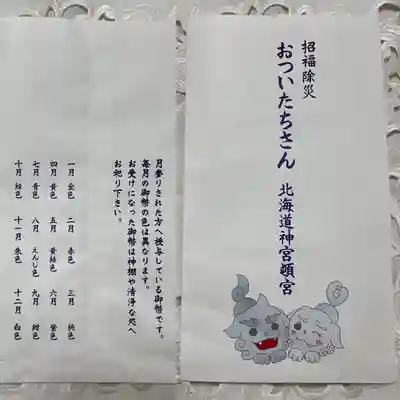 招福除災
おついたちさん
北海道神宮頓宮
月参りされた方へ授与している御幣です。
毎月の御幣の色は異なります。
お受けになった御幣は神棚や清浄な処へ
お祀り下さい。
一月 金色 二月 赤色 三月 桃色
四月 黄色 五月 黄緑色 六月 紫色
七月 青色 八月 えんじ色 九月 紺色
十月 緑色 十一月 朱色 十二月 白色